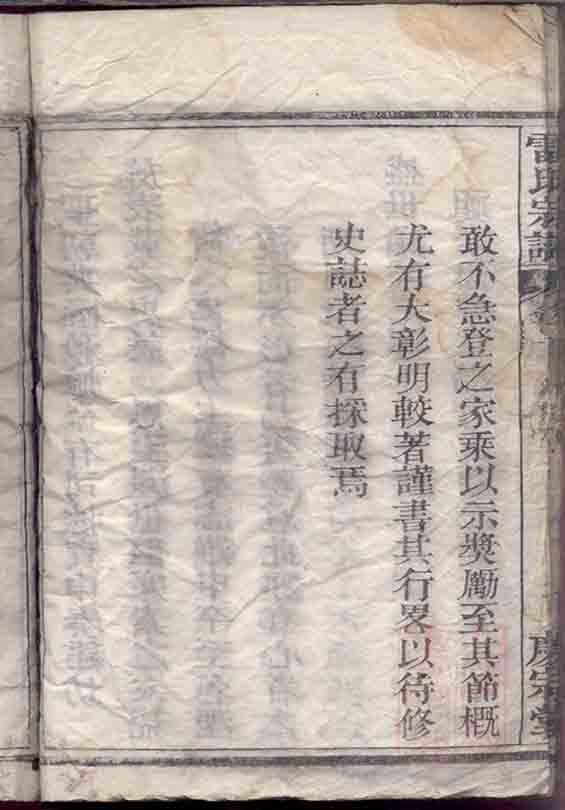 雷氏宗譜
敢不急登之家乘以示獎勵至其節概
尤有大彰明較著謹書其行畧以待修
史誌者之有採取焉